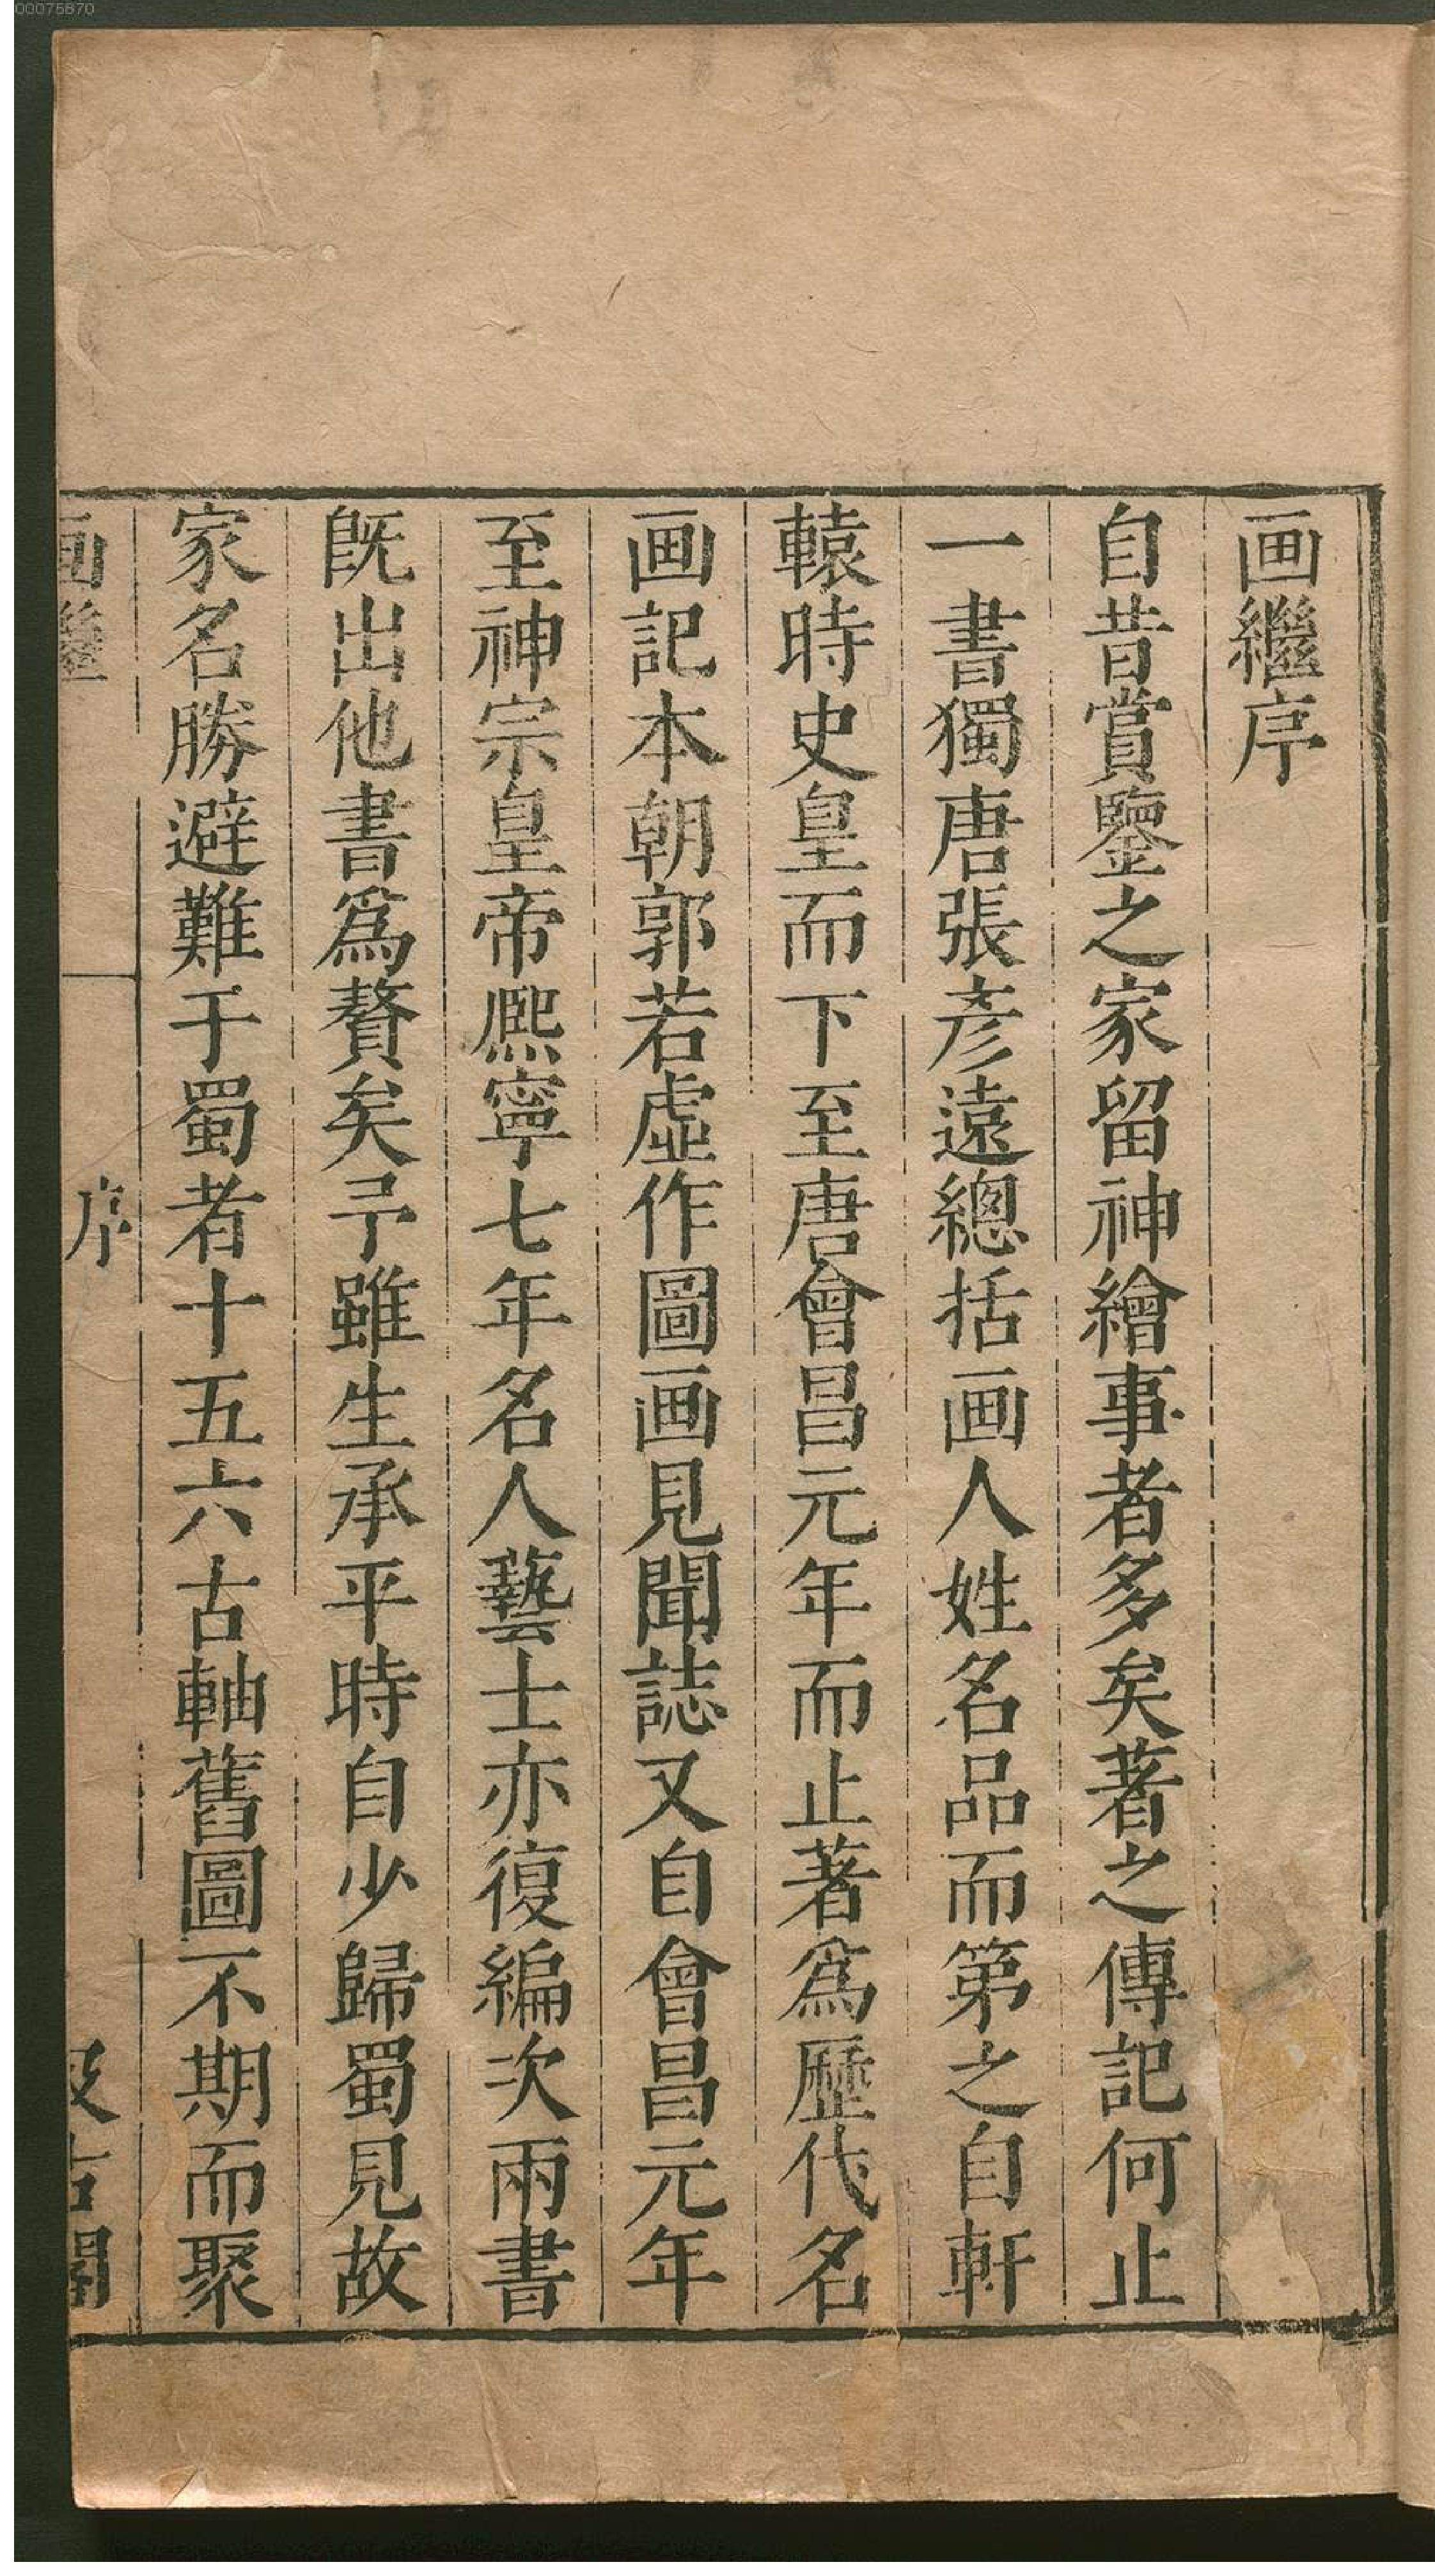 00075870
画繼序
自昔賞鑒之家留神繪事者多矣著之傳記何止
一書獨唐張彥遠總括画人姓名品而第之自軒
轅時史皇而下至唐會昌元年而止著爲歷代名
画記本朝郭若虛作圖画見聞誌又自會昌元年
至神宗皇帝熈寧七年名人藝士亦復編次兩書
既出他書爲贅矣予雖生承平時自少歸蜀見故
家名勝避難于蜀者十五六古軸舊圖不期而聚
画繼 序 汲古閣